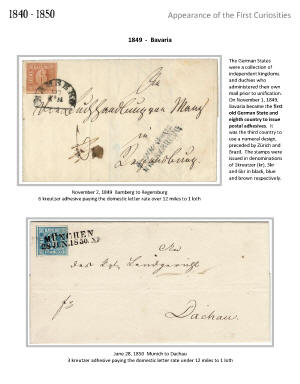 1840 - 1850
Appearance of the First Curiosities
1849 - Bavaria
The German States
were a collection of
independent kingdoms
and duchies who
administered their own
mail prior to unification.
On November 1, 1849,
Bavaria became the first
old German State and
eighth country to issue
postal adhesives. It
was the third country to
use a numeral design,
preceded by Zürich and
Brazil. The stamps were
issued in denominations
of 1kreutzer (kr), 3kr
and 6kr in black, blue
and brown respectively.
BAMBERG
An
Buchhandlung von Manz
in
Regensburg.
November 2, 1849 Bamberg to Regensburg
6 kreutzer adhesive paying the domestic letter rate over 12 miles to 1 loth
MÜNCHEN
28 JUN. 1850.
An
das Kgl. Landgericht
Dachau.
June 28, 1850 Munich to Dachau
3 kreutzer adhesive paying the domestic letter rate under 12 miles to 1 loth